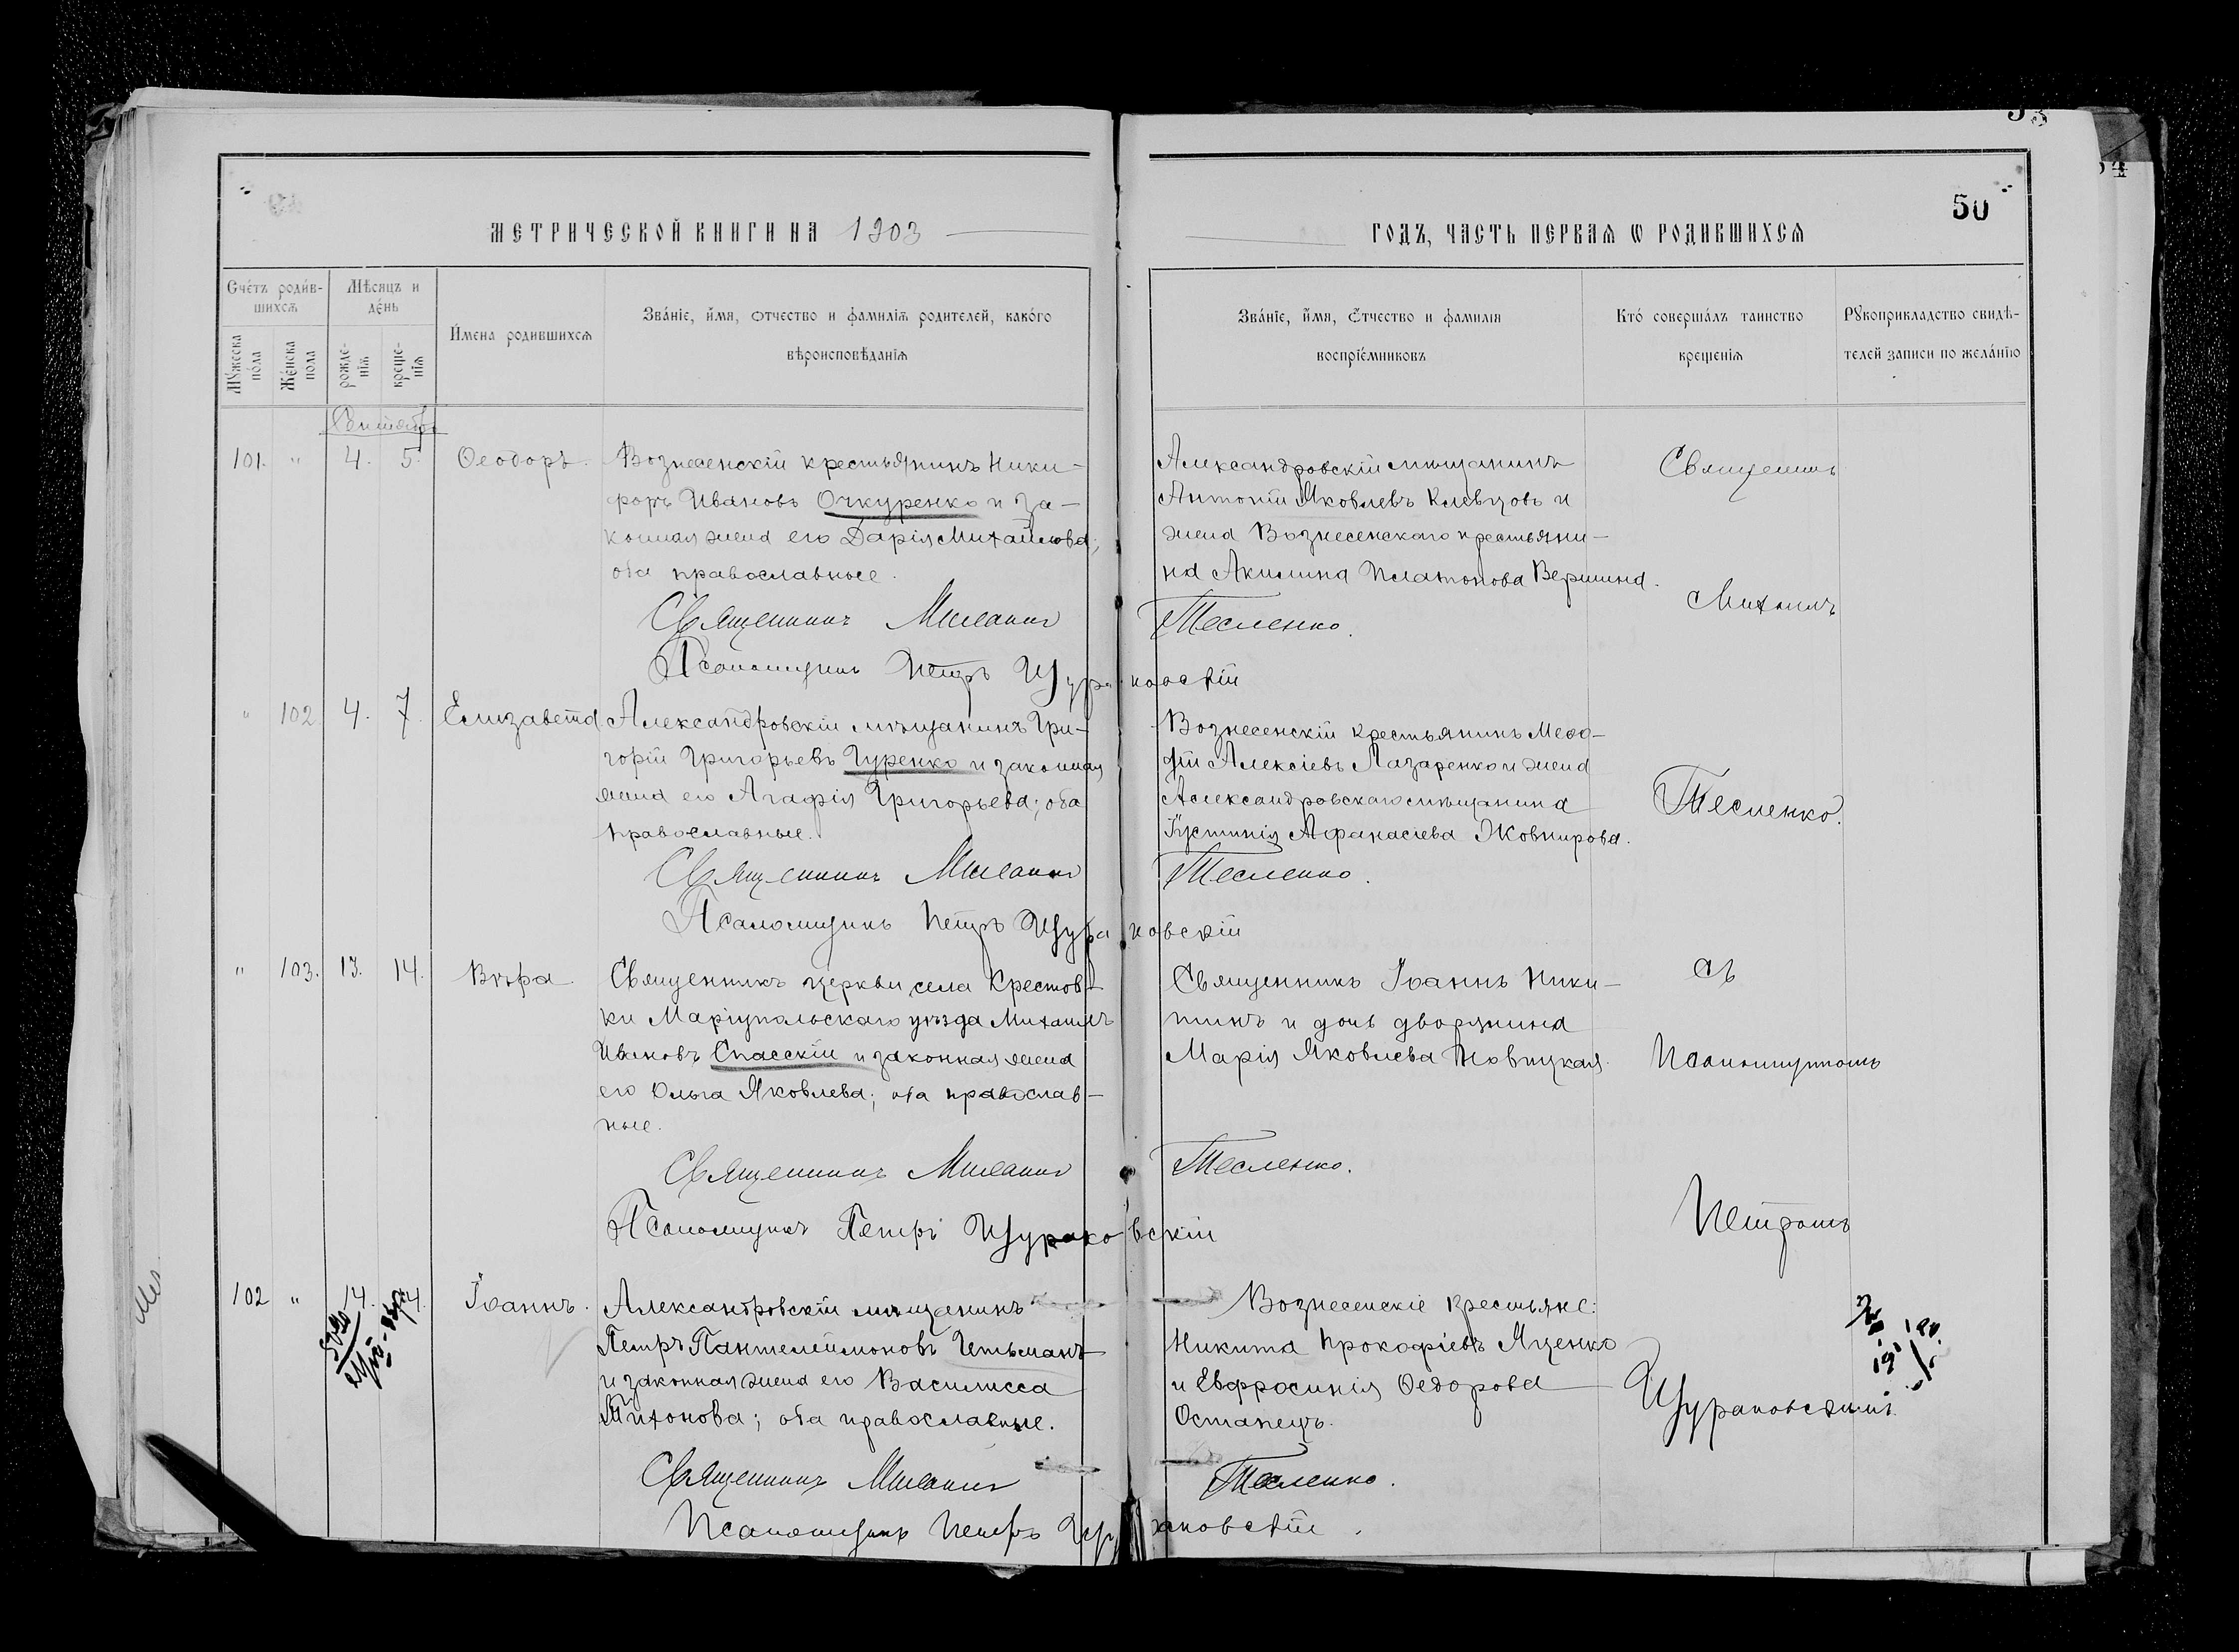 53
54
50
МЕТРИЧЕСКОЙ КНИГИ НА 1903
ГОДЪ, ЧАСТЬ ПЕРВАѦ Ѡ РОДИВШИХСѦ
Счетъ родив-
шихсѧ
Мѣсяцъ и
день
Мꙋжеска
пола
Женска
пола
рожде-
нїѧ
креще-
нїѧ
Имена родившихсѧ
Званїе, имя, отчество и фамилїѧ родителей, какого
вѣроисповѣданїѧ
Званїе, имя, отчество и фамилїя
воспрїемниковъ
Кто совершалъ таинство
крещенїѧ
Рꙋкоприкладство свидѣ-
телей записи по желанїю
Сентябрь
101. " 4. 5. Ѳеодоръ.
Вознесенскій крестьянинъ Ники-
форъ Ивановъ Очкуренко и за-
конная жена его Дарія Михайлова;
оба православные.
Священникъ Михаилъ Тесленко.
Псаломщикъ Петръ Щураковскій
Александровскій мѣщанинъ
Антоній Яковлевъ Клевцовъ и
жена Вознесенскаго крестьяни-
на Акилина Платонова Вершина.
Священникъ
Михаилъ
" 102. 4. 7. Елизавета
Александровскій мѣщанинъ Гри-
горій Григорьевъ Гуренко и законная
жена его Агафія Григорьева; оба
православные.
Священникъ Михаилъ Тесленко.
Псаломщикъ Петръ Щураковскій
Вознесенскій крестьянинъ Меѳо-
дій Алексіевъ Лазаренко и жена
Александровскаго мѣщанина
Іустинія Афанасіева Жовнирова.
Тесленко.
" 103. 13. 14. Вѣра
Священникъ церкви села Крестов-
ки Маріупольскаго уѣзда Михаилъ
Ивановъ Спасскій и законная жена
его Ольга Яковлева; оба православ-
ные.
Священникъ Михаилъ Тесленко.
Псаломщикъ Петръ Щураковскій
Священникъ Іоаннъ Ники-
тинъ и дочь дворянина
Марія Яковлева Новицкая.
съ
Псаломщикомъ
Петромъ
102 " 14. 14. Іоаннъ.
Александровскій мѣщанинъ
Петръ Пантелеймоновъ Гетьманъ
и законная жена его Василисса
Тихонова; оба православные.
Священникъ Михаилъ Тесленко.
Псаломщикъ Петръ Щураковскій.
Вознесенскіе крестьяне:
Никита Прокофіевъ Яценко
и Евфросинія Ѳедорова
Остапецъ.
Щураковскимъ